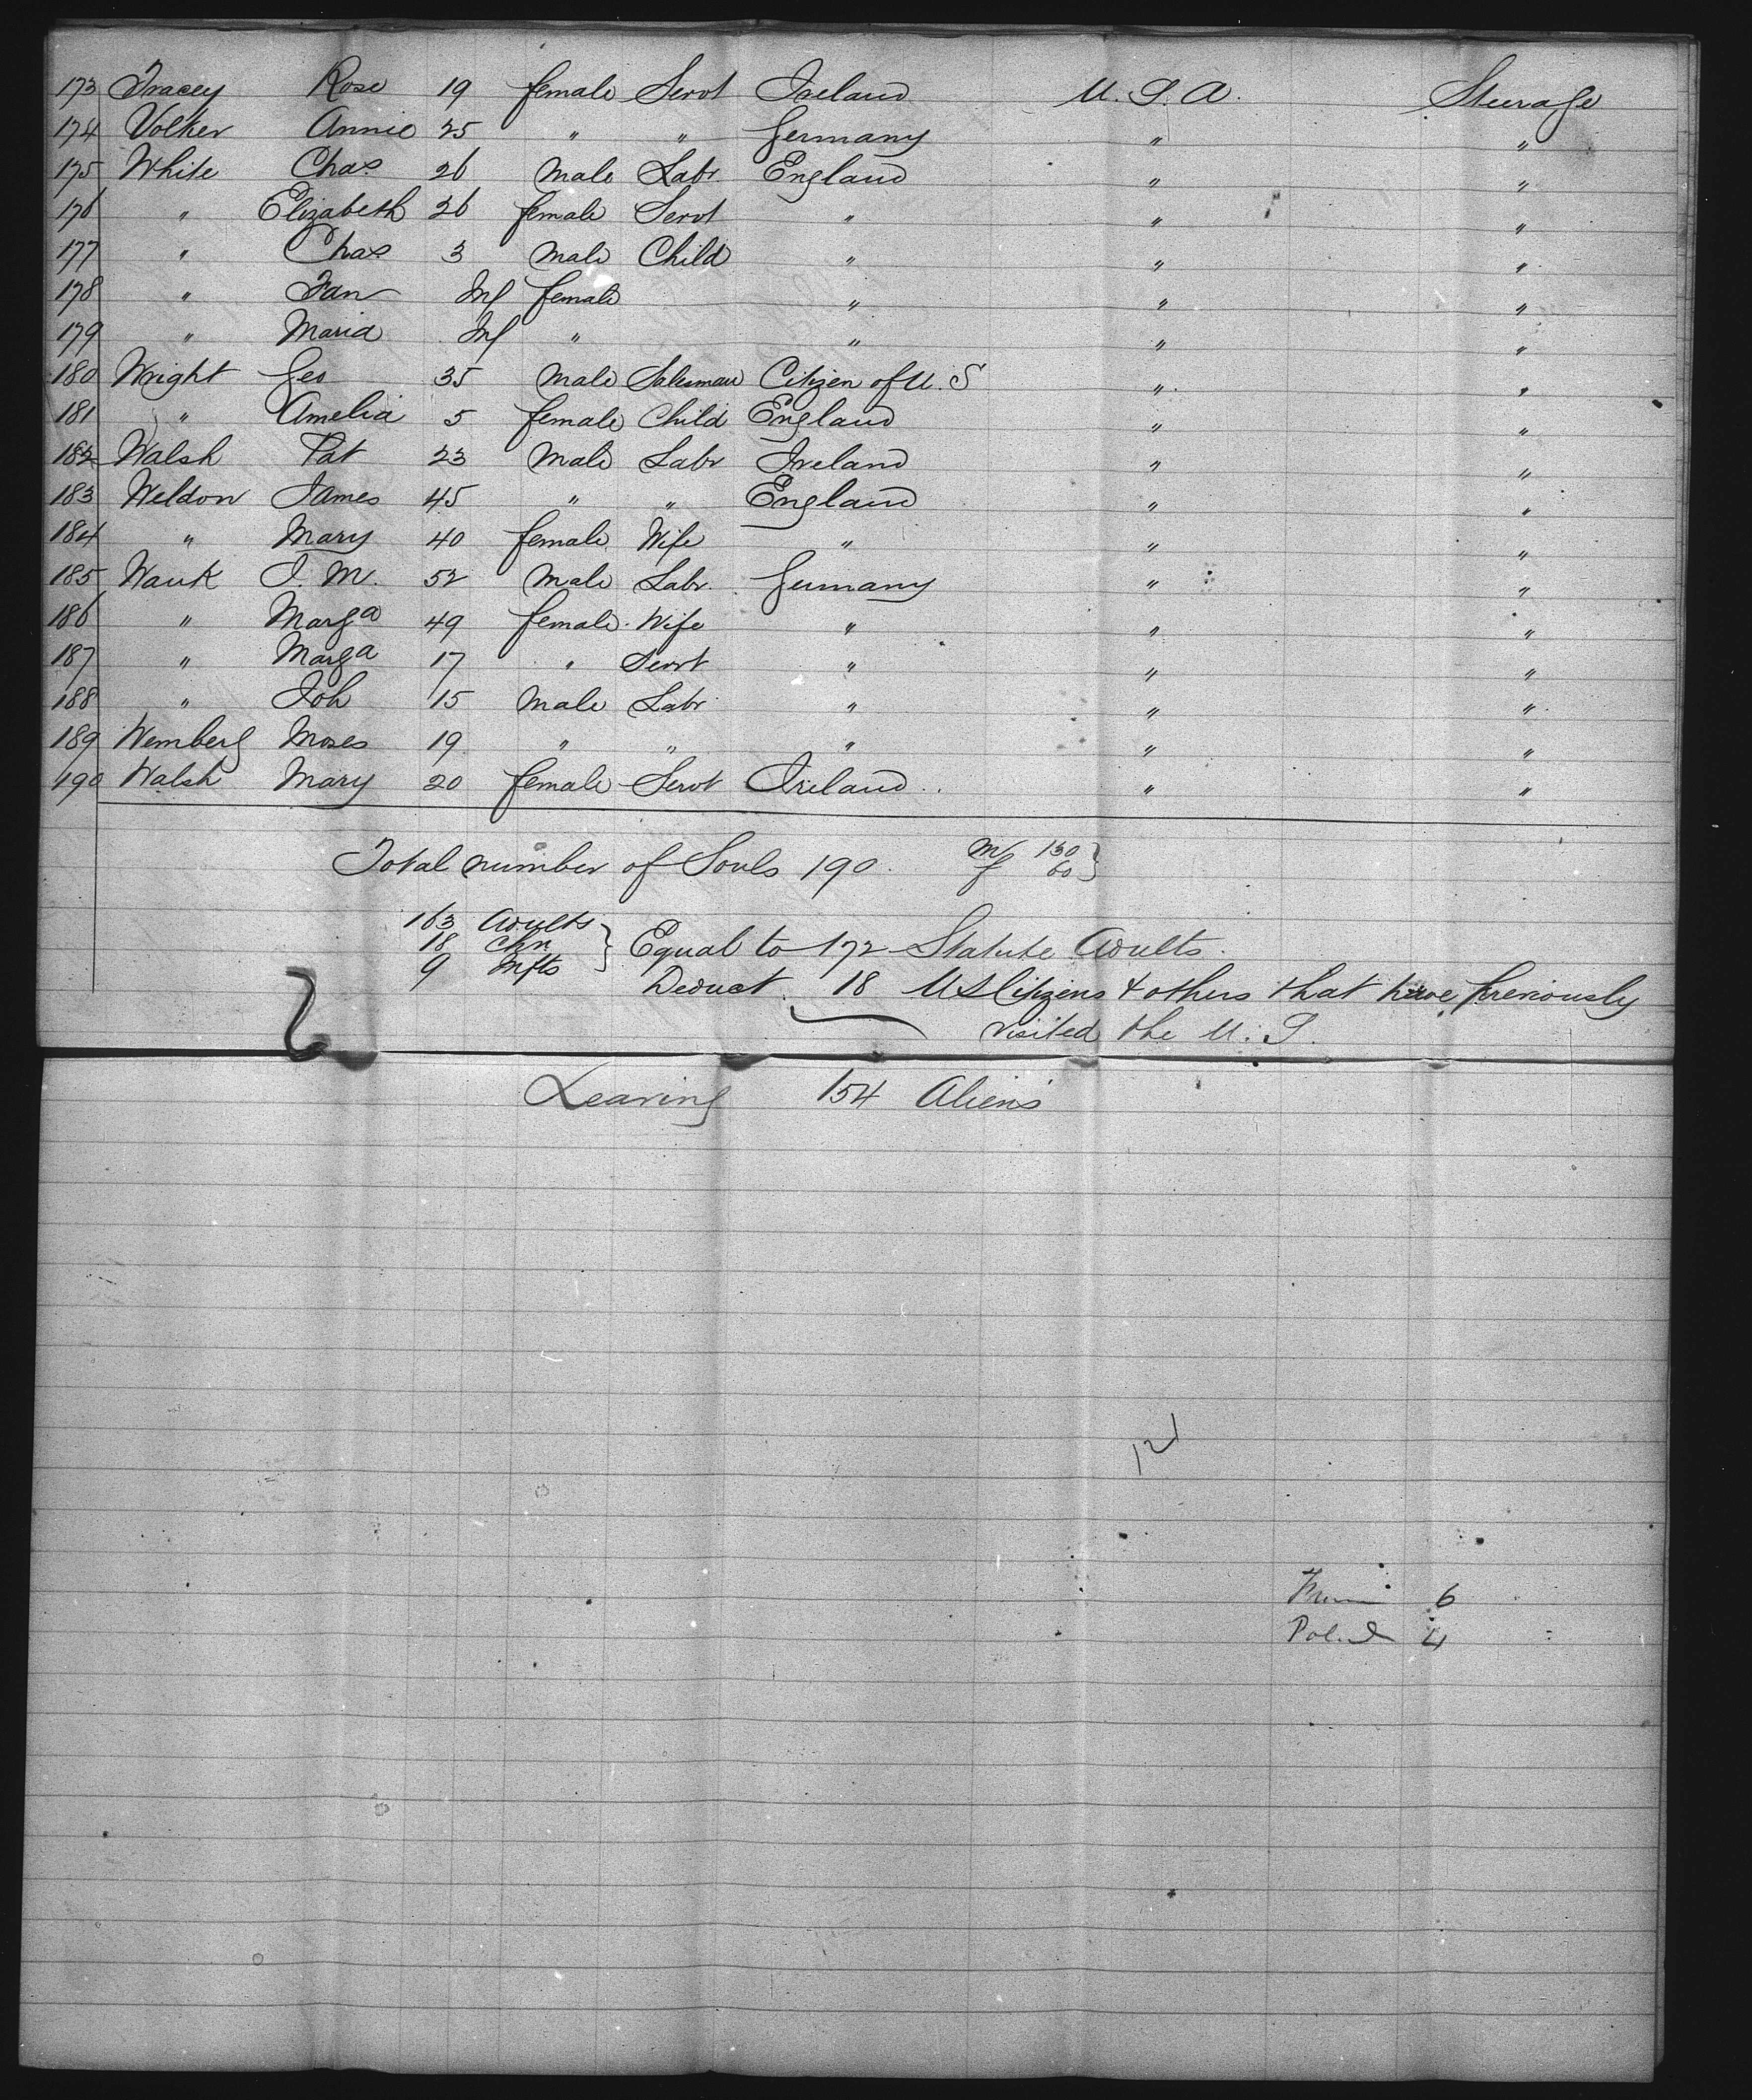 173 Tracey Rose 19 female Servt Ireland U.S.A. Steerage
174 Volker Annie 25 " " Germany " "
175 White Chas 26 male Labr. England " "
176 " Elizabeth 26 female Servt " " "
177 " Chas 3 male Child " " "
178 " Fan Inf female " " "
179 " Maria Inf " " " "
180 Wright Geo 35 male Salesman Citizen of U.S " "
181 " Amelia 5 female Child England " "
182 Walsh Pat 23 male Labr Ireland " "
183 Weldon James 45 " " England " "
184 " Mary 40 female Wife " " "
185 Wauk J. M. 52 male Labr. Germany " "
186 " Marga 49 female Wife " " "
187 " Marga 17 " Servt " " "
188 " Joh 15 male Labr " " "
189 Wemberg Moses 19 " " " " "
190 Walsh Mary 20 female Servt Ireland " "
Total number of Souls 190. M 130
f 60
163 Adults
18 Chn
9 Infts
Equal to 172 Statute Adults.
Deduct 18 US Citizens & others that have previously
visited the U.S.
Leaving 154 Aliens
121
6
4